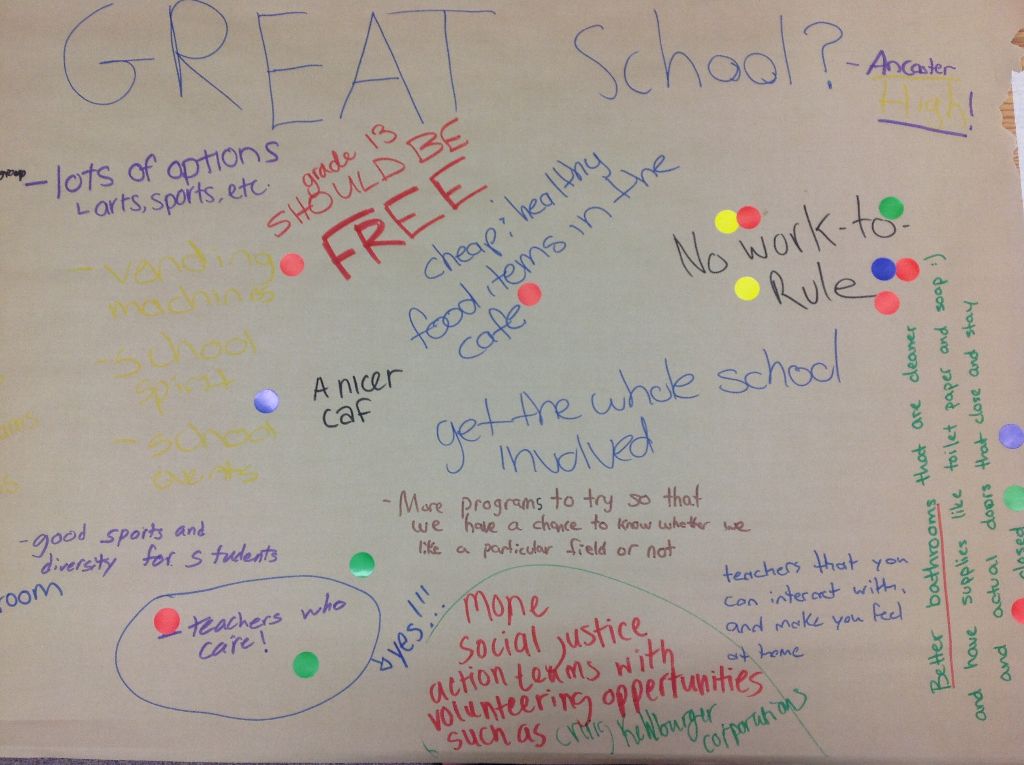 GREAT School? - Ancaster
High!
- lots of options
↳ arts, sports, etc.
grade 13
SHOULD BE
FREE
cheap & healthy
food items in the
cafe
No work-to-
Rule
- vending
machines
- school
spirit
- school
events
A nicer
caf
get the whole school
involved
- More programs to try so that
we have a chance to know whether we
like a particular field or not
- good sports and
diversity for students
room
- teachers who
care!
yes!!!
more
social justice
action teams with
volunteering oppertunities
such as craig keilburger
corporations
teachers that you
can interact with,
and make you feel
at home
Better bathrooms that are cleaner
and have supplies like toilet paper and soap :)
and actual doors that close and stay
closed